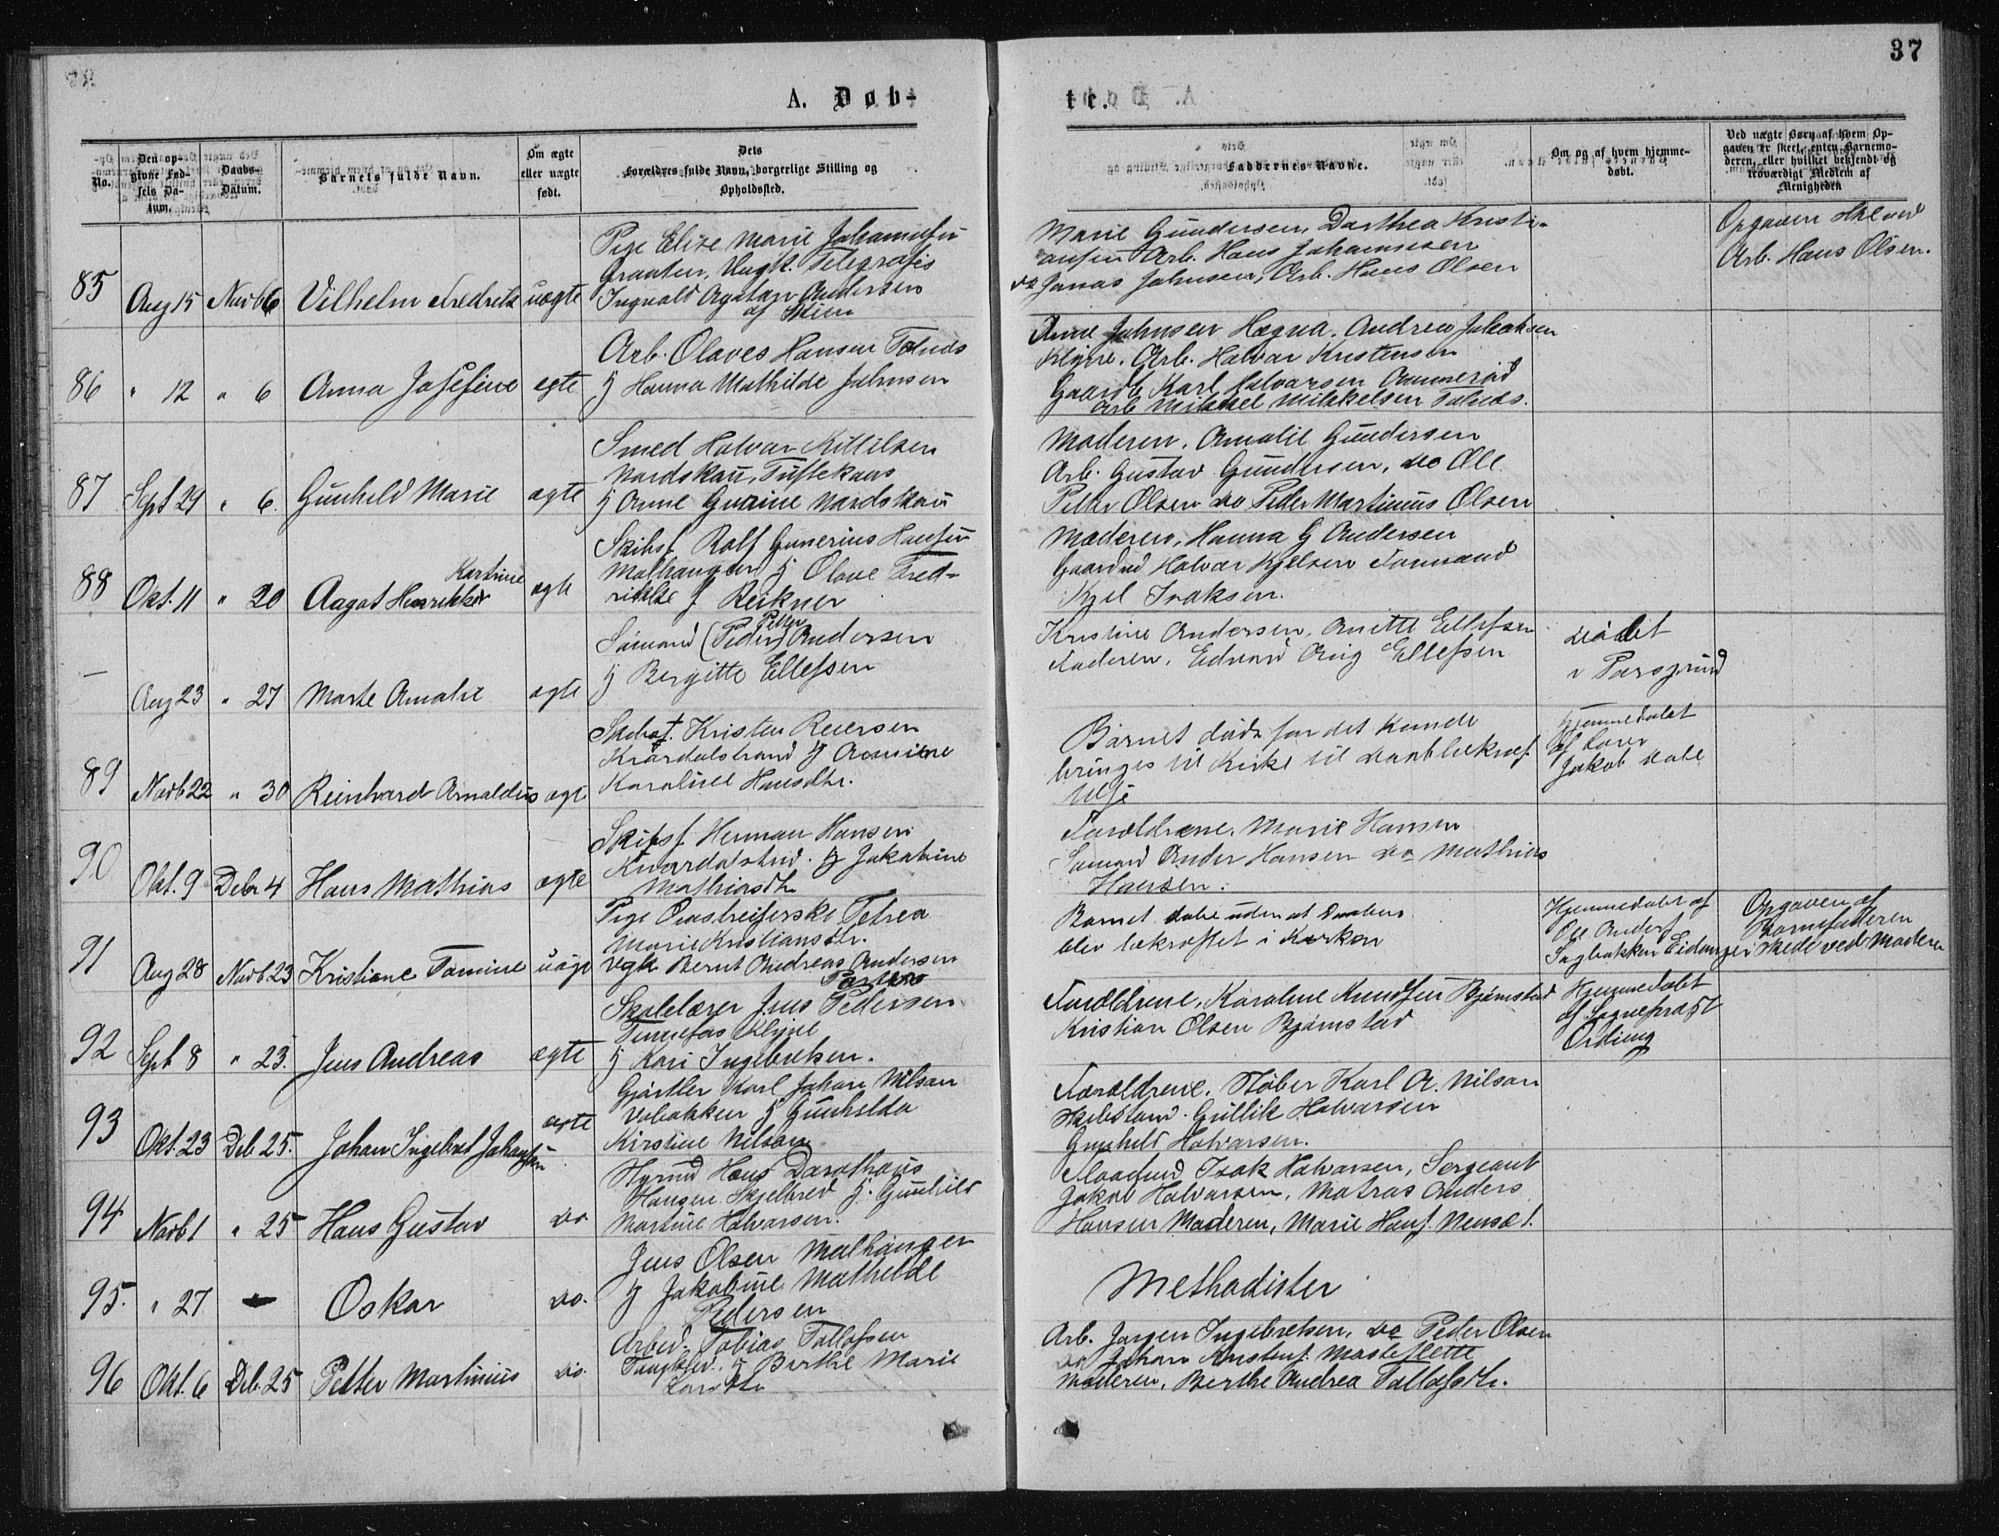 37
A. Døb-
te.
No.
Den op-
givne Fød-
sels Da-
tum.
Daabs-
Datum.
Barnets fulde Navn.
Om ægte
eller uægte
født.
Dets
Forældres fulde Navn, borgerlige Stilling og
Opholdssted.
Faddernes Navne.
Om og af hvem hjemme-
døbt.
Ved uægte Børn af hvem Op-
gaven er skeet, enten Barnemo-
deren, eller hvilket bekjendt og
troværdigt Medlem af
Menigheden
85 Aug 15 Novb 6 Vilhelm Fredrik uægte
Pige Elise Marie Johannesen
Graaten, Ungk. Telegrafis
Ingvald Agaton Andersen
af Skien
Marie Gundersen, Dorthea Kristi-
ansen Arb. Hans Johannesen
do Jonas Johnsen, Arb. Hans Olsen
Opgaven skel ved
Arb. Hans Olsen.
86 " 12 " 6 Anna Josefine egte
Arb. Olaves Hansen Tolnæs
Hj Hanna Mathilde Johnsen
Anne Johnsen Hægna. Andrea Jakobsen
Klyve. Arb. Halvor Kristensen
Gaardb Karl Halvorsen Ommerød
Arb Mikkel Mikkelsen Tolnæs.
87 Sept 24 " 6. Gunhild Marie ægte
Smed Halvor Kittilsen
Nordskau, Tuftekaas
Hj Anne Gurine Nordskau
Moderen. Amalie Gundersen
Arb. Gustav Gundersen, do Ole
Petter Olsen do Peder Martinius Olsen
88 Okt. 11 " 20 Aagot Henrikke Katrine ægte
Skibsf Rolf Gunerius Hansen
Molhaugen Hj Olave Fred-
rikke f Reikner
Moderen, Hanna G Andersen
Gaardmd Halvor Kjelsen Tomvand
Kjel Isaksen.
— Aug 23 " 27 Marte Amalie ægte
Sømand (Peder) Petter Andersen
Hj Bergitte Ellefsen
Kristine Andersen, Anette Ellefsen
Faderen. Edvard Ellefsen
døbt
i Porsgrund
89 Novb 22 " 30 Reinhard Arnoldus ægte
Skibst. Kristen Reiersen
Karoline Hansdtr.
Barnet døde før det kunde
bringes til Kirke til daabbekræf-
telse
Hjemmedøbt
af Lærer
Jakob Dale
90 Okt. 9 Debr 4 Hans Mathias ægte
Skibsf. Herman Hansen
Hj Jakobine
Mathiasdtr
Forældrene. Marie Hansen
Sømand Ander Hansen do Mathias
Hansen.
91 Aug 28 Novb 23 Kristiane Tomine uæg
Marie Kristiansdtr.
Ungk Bernt Andreas Andersen
Barnet døde uden at Daaben
blev bekræftet i Kirken
Hjemmedøbt af
Ole Anders
Opgaven af
Barnefaderen
skede ved Moderen
92 Sept 8 " 23. Jens Andreas ægte
Skolelærer Jens Pedersen
Tinnefos Klyve
Hj Kari Ingebretsen.
Forældrene, Karoline Knudsen Bjørnstad
Kristian Olsen Bjørnstad
Hjemmedøbt
af Sogneprest
Ording
93 Okt. 23 Deb. 25. Johan Ingebret Johansen ægte
Gjørtler Karl Johan Nilsen
Hj Gunhilda
Kirstine Nilsen
Forældrene. Støber Karl A. Nilsen
Gullik Halvorsen
Gunhild Halvorsen.
94 Novb 1 " 25 Hans Gustav do
Hyrmd Hans
Hansen Skjelbred Hj. Gunhild
Martine Halvorsen.
Isak Halvorsen, Sergeant
Jakob Halvorsen, Matros Anders
Hansen Moderen, Marie Hansf. Nenset.
95. " 27 — Oskar do.
Jens Olsen Molhaugen
Hj Jakobine Mathilde
Pedersen
Methodister
96 Okt. 6 Deb. 25 Petter Martinius do.
Arbed. Tobias Tollefsen
Hj Berthe Marie
Larsdtr
Arb. Jørgen Ingebretsen, do Peder Olsen
do Johan Kristens.
Moderen, Berthe Andrea Tollefsdtr.